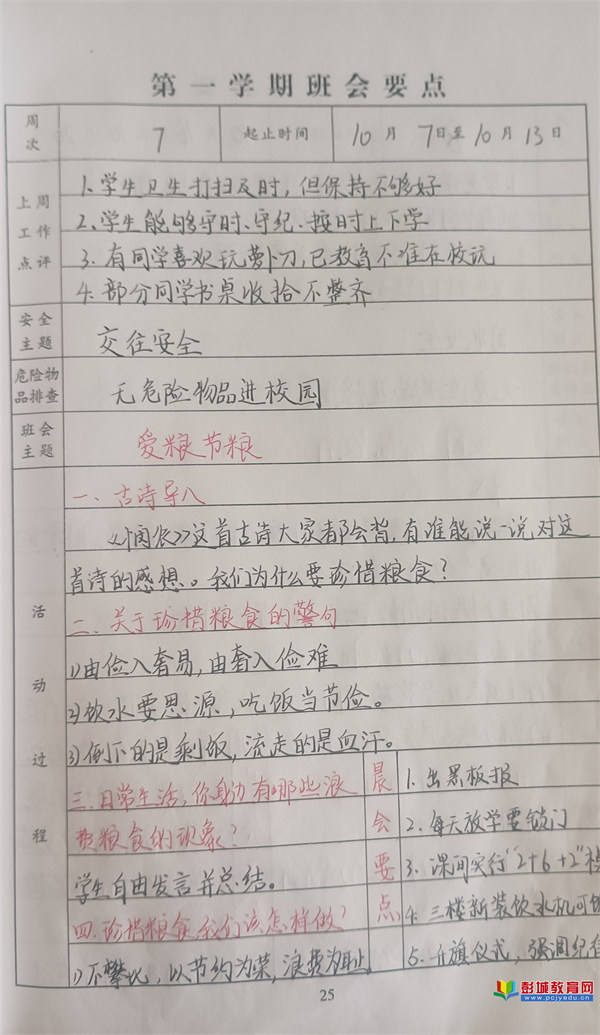 第一学期班会要点
周次 7 起止时间 10月 7日至10月13日
上周工作点评
1.学生卫生打扫及时,但保持不够好
2、学生能够守时、守纪、按时上下学
3.有同学喜欢玩萝卜刀,已教育不准在校玩
4.部分同学书桌收拾不整齐
安全主题 交往安全
危险物品排查 无危险物品进校园
班会主题 爱粮节粮
活动过程
一、古诗导入
《悯农》这首古诗大家都会背,有谁能说一说对这
首诗的感想。我们为什么要珍惜粮食?
二、关于珍惜粮食的警句
1)由俭入奢易,由奢入俭难
2)饮水要思源,吃饭当节俭。
3)倒下的是剩饭,流走的是血汗。
三、日常生活,你身边有哪些浪
费粮食的现象?
学生自由发言并总结。
四、珍惜粮食我们该怎样做?
1)不攀比,以节约为荣,浪费为耻。
晨会要点
1.出黑板报
2.每天放学要锁门
3.课间实行"2+6+2"
4.三楼新装饮水机可
5.升旗仪式,强调纪
25
彭城教育网
www.pcjyedu.cn